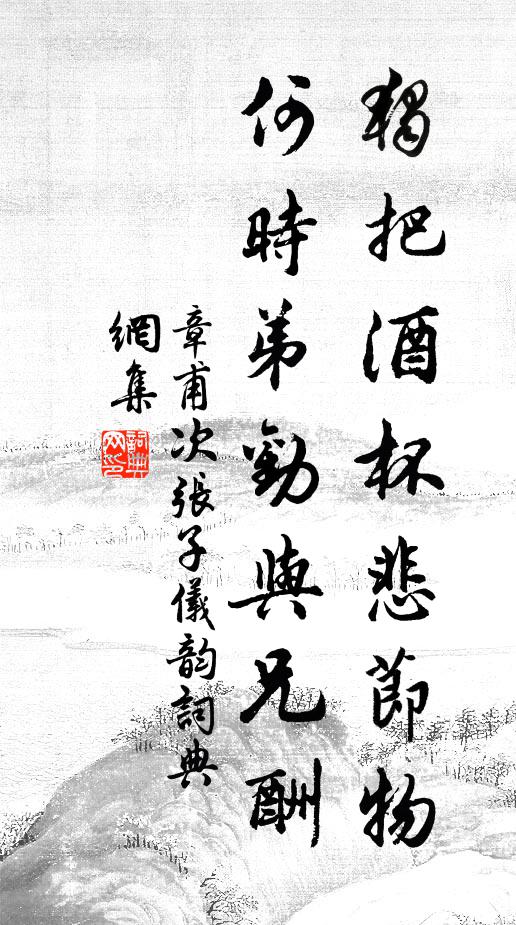 獨把酒杯悲節物
何時弟勸與兄酬
章甫次張子儀韵詞典
網集
詞典網印